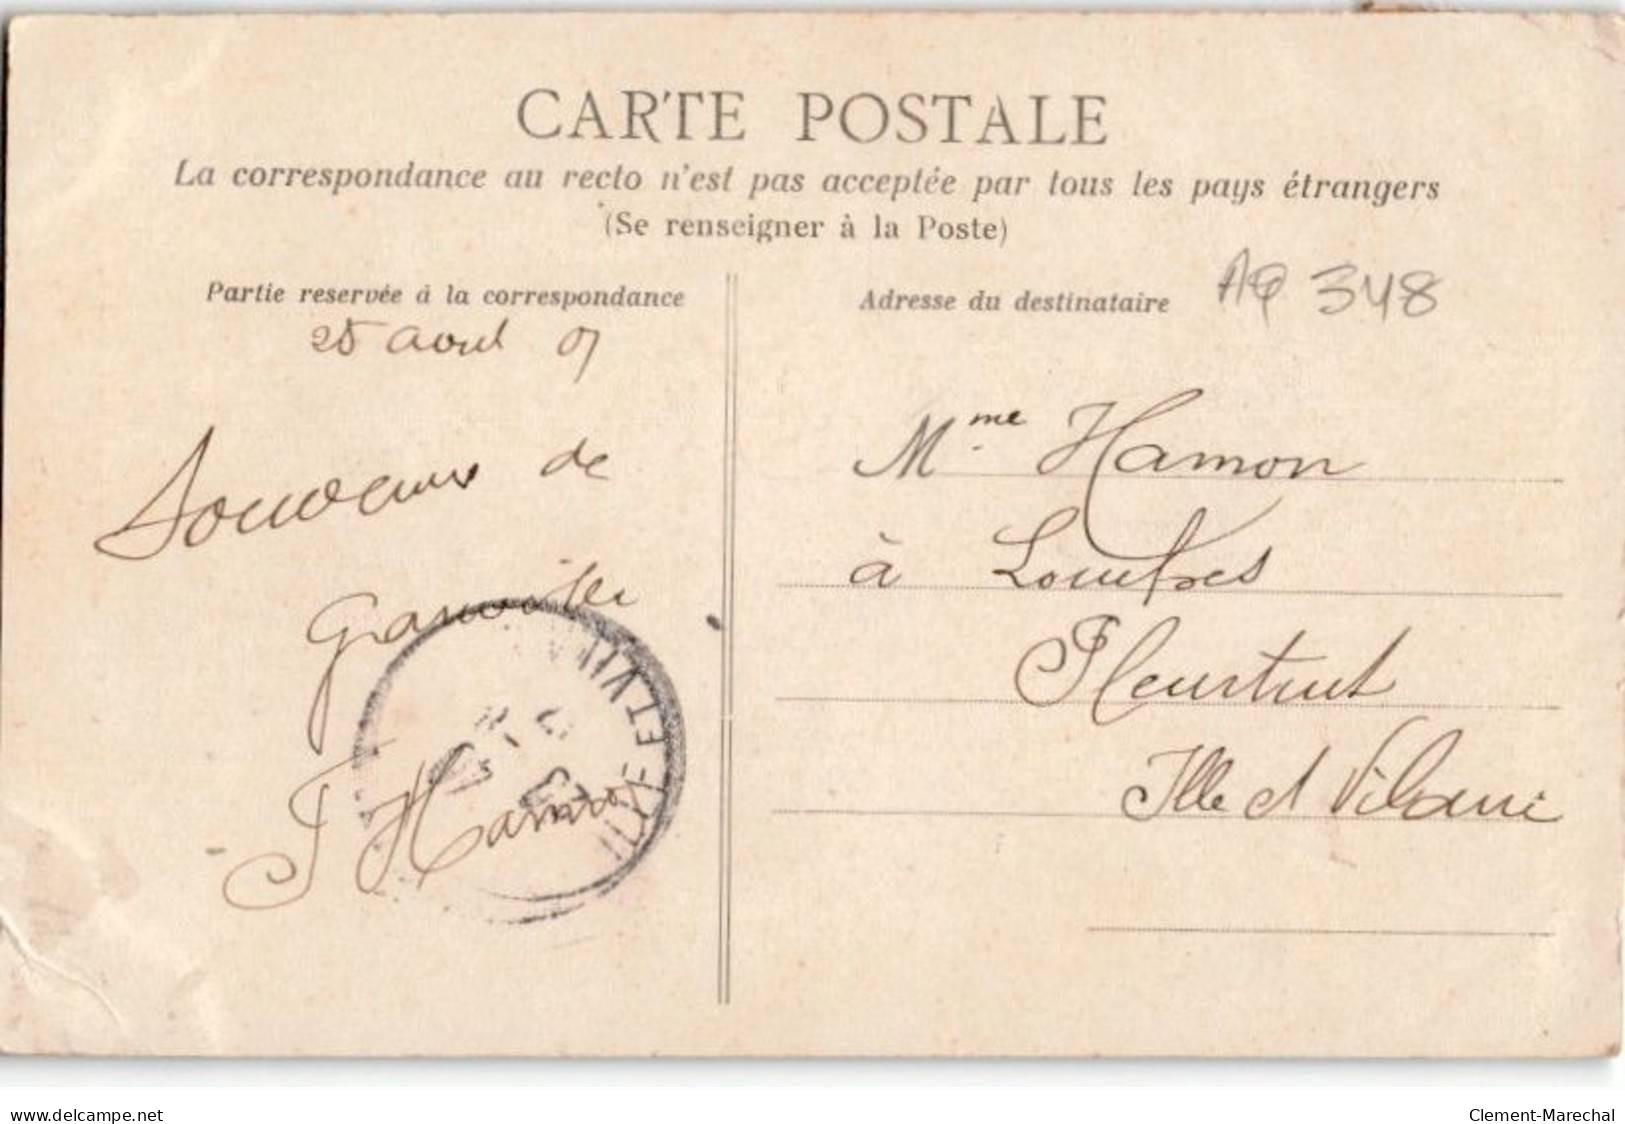 CARTE POSTALE
La correspondance au recto n'est pas acceptée par tous les pays étrangers
(Se renseigner à la Poste)
Partie reservée à la correspondance
25 avril 07
Souvenir de
Granville
J Hamon
Adresse du destinataire
AQ 348
Mme Hamon
à
Pleurtuit
Ille et Vilaine
ILLE ET VIL
www.delcampe.net
Clement-Marechal